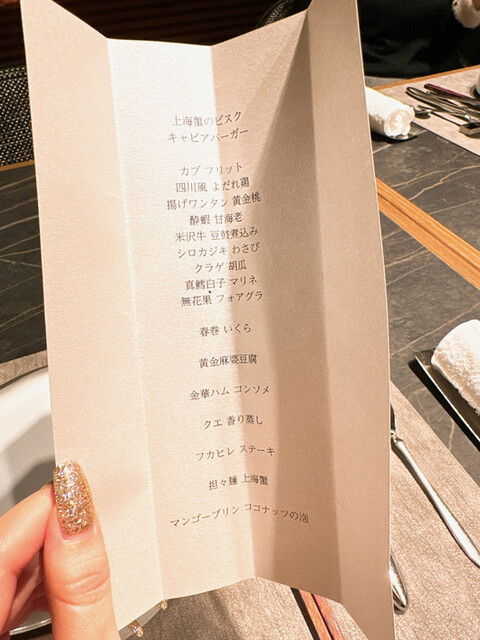 上海蟹のビスク
キャビアバーガー
カブ フリット
四川風 よだれ鶏
揚げワンタン 黄金桃
酔蝦 甘海老
米沢牛 豆鼓煮込み
シロカジキ わさび
クラゲ 胡瓜
真鱈白子 マリネ
無花果 フォアグラ
春巻 いくら
黄金麻婆豆腐
金華ハム コンソメ
クエ 香り蒸し
フカヒレ ステーキ
担々麺 上海蟹
マンゴープリン ココナッツの泡